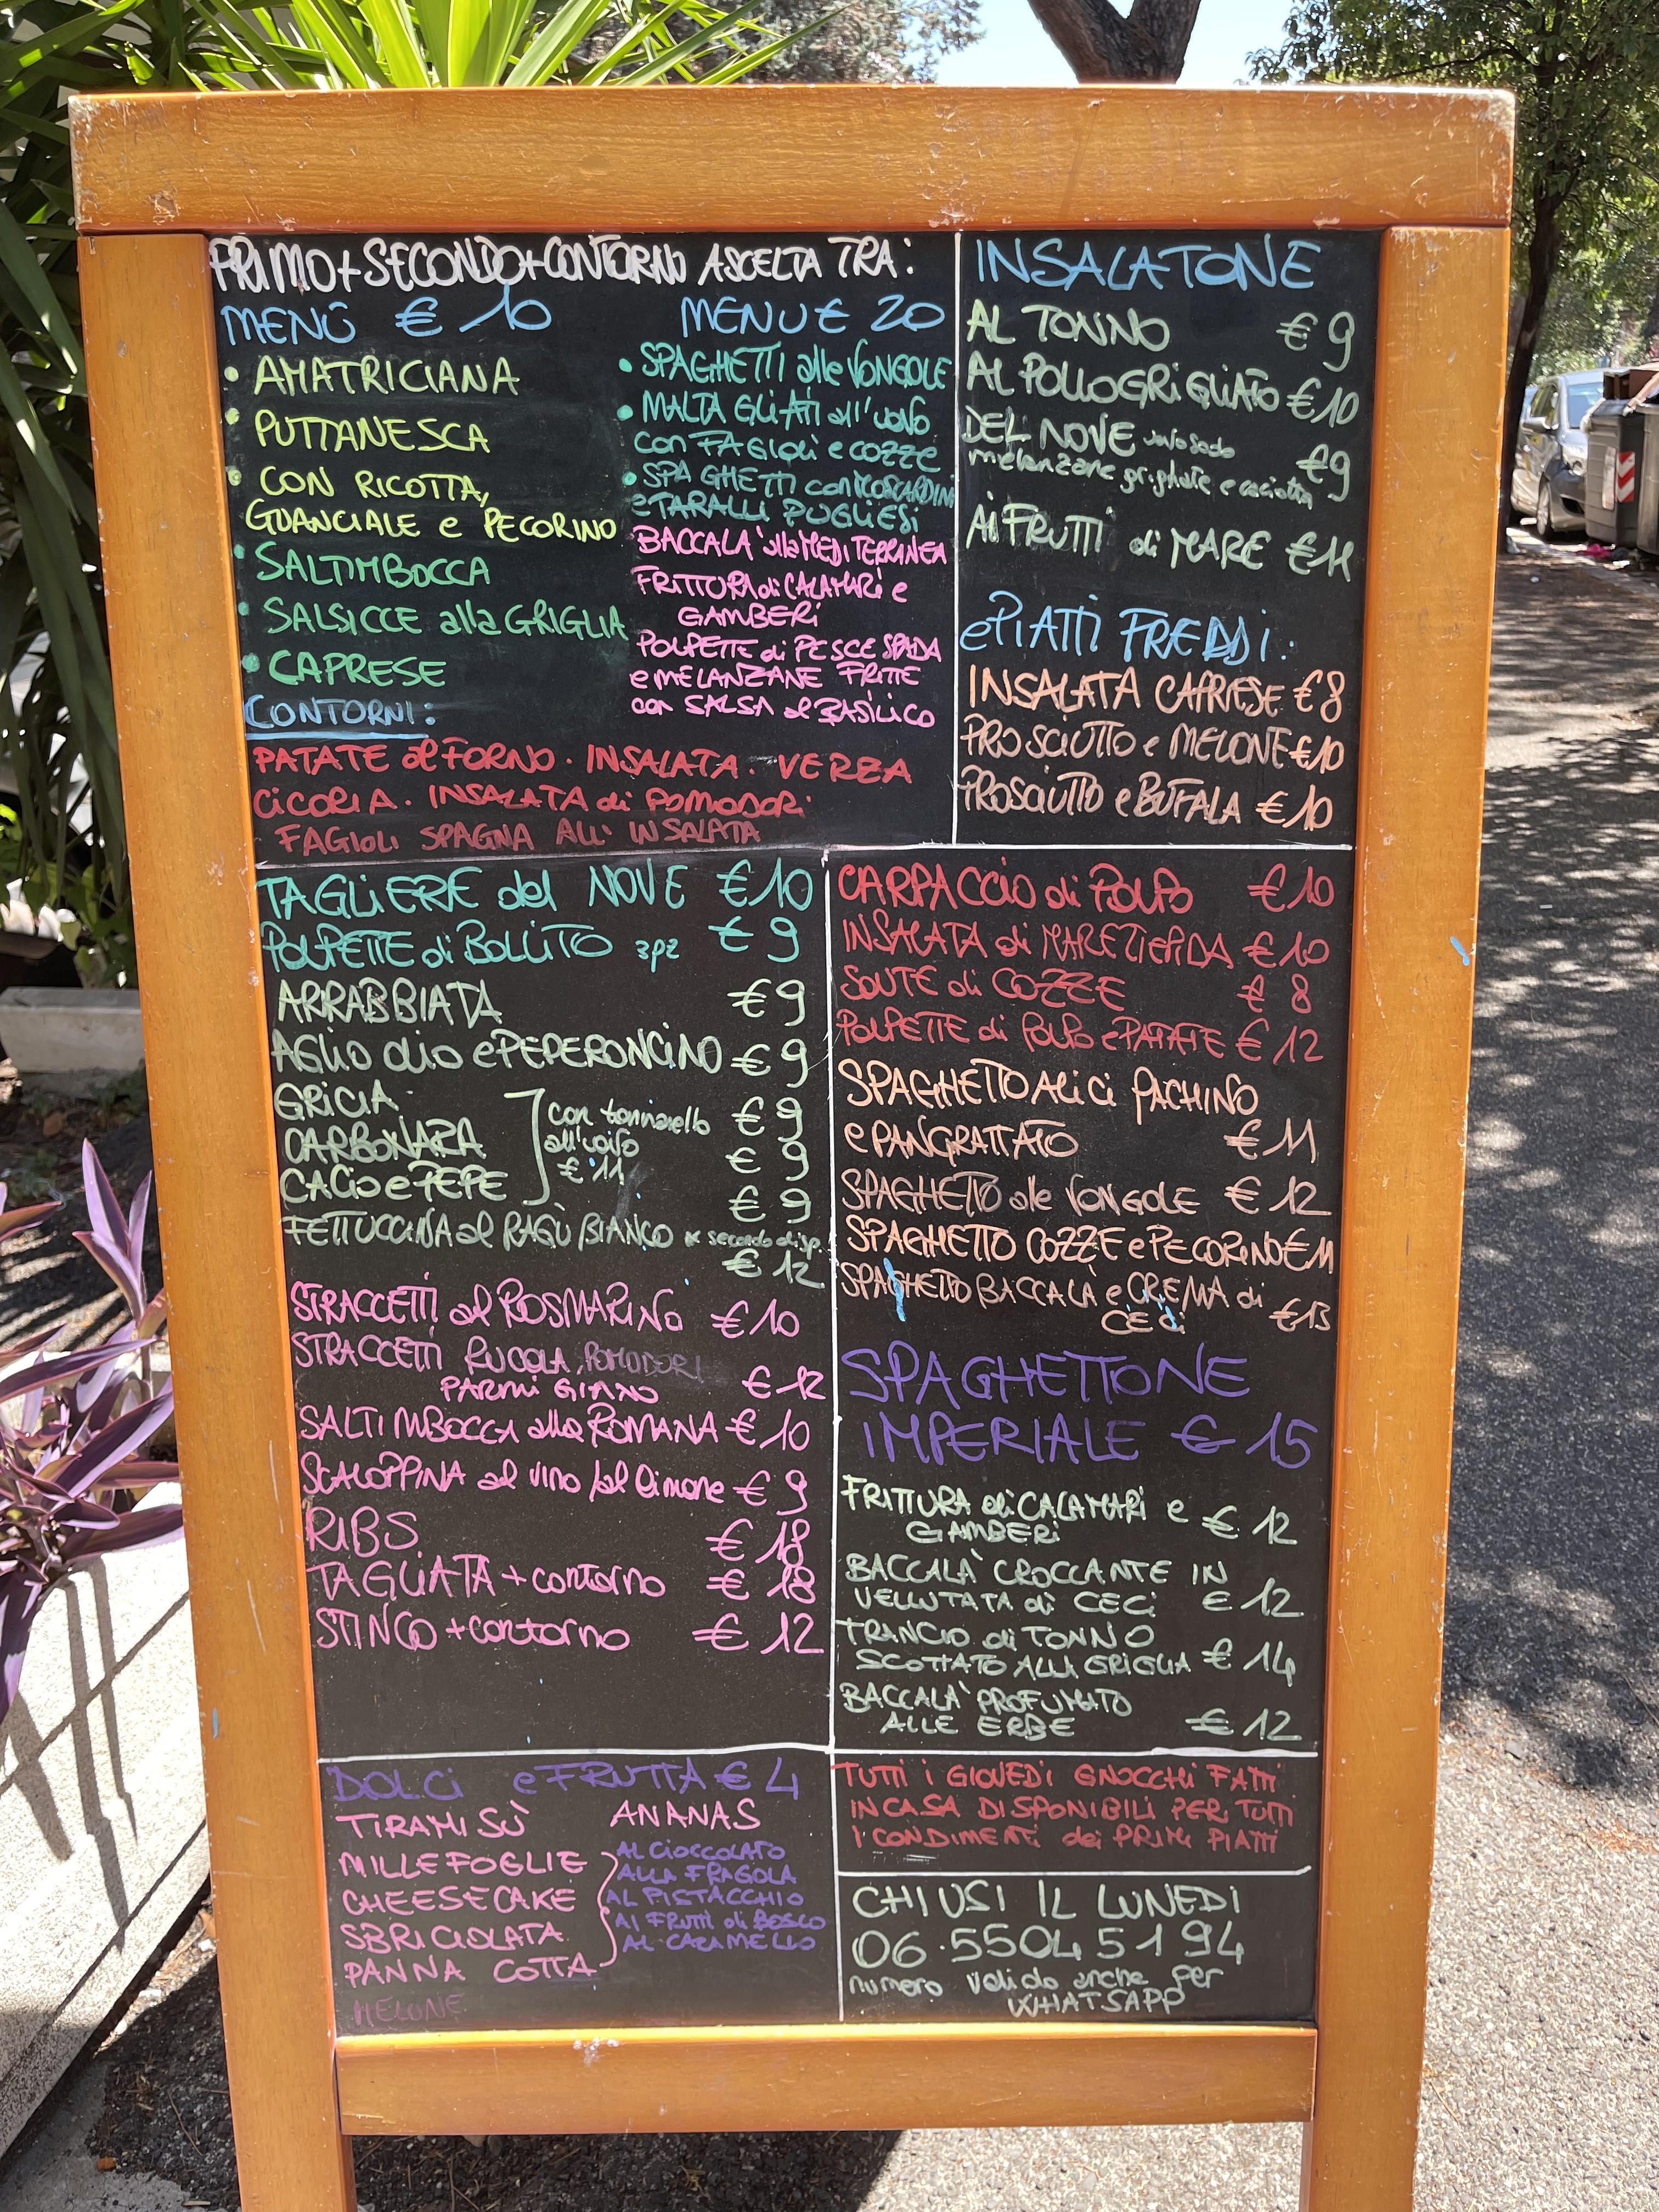 PRIMO+SECONDO+CONTORNO A SCELTA TRA:
MENÙ € 10
• AMATRICIANA
• PUTTANESCA
• CON RICOTTA,
GUANCIALE e PECORINO
• SALTIMBOCCA
• SALSICCE alla GRIGLIA
• CAPRESE
MENU € 20
• SPAGHETTI alle VONGOLE
• MALTAGLIATI all'uovo
con FAGIOLI e COZZE
• SPAGHETTI con MOSCARDINI
e TARALLI PUGLIESI
BACCALA' alla MEDITERRANEA
FRITTURA di CALAMARI e
GAMBERI
POLPETTE di PESCE SPADA
e MELANZANE FRITTE
con SALSA al BASILICO
CONTORNI:
PATATE al FORNO. INSALATA. VERZA
CICORIA. INSALATA di POMODORI
FAGIOLI SPAGNA ALL'INSALATA
INSALATONE
AL TONNO € 9
AL POLLO GRIGLIATO € 10
DEL NOVE uovo sodo
melanzane grigliate e caciotta €9
AI FRUTTI di MARE € 11
e PIATTI FREDDI:
INSALATA CAPRESE € 8
PROSCIUTTO e MELONE €10
PROSCIUTTO e BUFALA € 10
TAGLIERE del NOVE € 10
POLPETTE di BOLLITO 3pz € 9
ARRABBIATA € 9
AGLIO OLIO e PEPERONCINO € 9
GRICIA € 9
CARBONARA € 9
CACIO e PEPE € 9
con tonnarello
all'uovo
€ 11
FETTUCCINA al RAGÙ BIANCO * secondo disp.
€ 12
STRACCETTI al ROSMARINO € 10
STRACCETTI RUCOLA, POMODORI
PARMIGIANO € 12
SALTIMBOCCA alla ROMANA € 10
SCALOPPINA al vino /al limone € 9
RIBS € 18
TAGLIATA + contorno € 18
STINCO + contorno € 12
CARPACCIO di POLPO € 10
INSALATA di MARE TIEPIDA € 10
SOUTE di COZZE € 8
POLPETTE di POLPO e PATATE € 12
SPAGHETTO ALICI PACHINO
e PANGRATTATO € 11
SPAGHETTO alle VONGOLE € 12
SPAGHETTO COZZE e PECORINO € 11
SPAGHETTO BACCALÀ e CREMA di
CECI € 13
SPAGHETTONE
IMPERIALE € 15
FRITTURA di CALAMARI e
GAMBERI € 12
BACCALA' CROCCANTE IN
VELLUTATA di CECI € 12
TRANCIO di TONNO
SCOTTATO ALLA GRIGLIA € 14
BACCALA' PROFUMATO
ALLE ERBE € 12
DOLCI e FRUTTA € 4
TIRAMISÙ ANANAS
MILLEFOGLIE
CHEESECAKE
SBRICIOLATA
PANNA COTTA
MELONE
AL CIOCCOLATO
ALLA FRAGOLA
AL PISTACCHIO
AI FRUTTI di BOSCO
AL CARAMELLO
TUTTI I GIOVEDÌ GNOCCHI FATTI
IN CASA DISPONIBILI PER TUTTI
I CONDIMENTI dei PRIMI PIATTI
CHIUSI IL LUNEDÌ
06.55045194
numero valido anche per
WHATSAPP